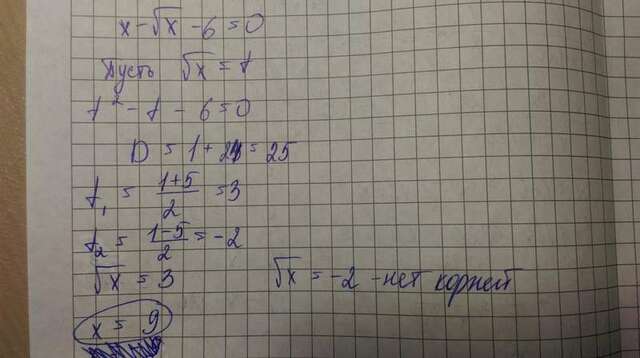 x - √x - 6 = 0
Пусть √x = t
t² - t - 6 = 0
D = 1 + 24 = 25
t₁ = (1+5)/2 = 3
t₂ = (1-5)/2 = -2
√x = 3 √x = -2 - нет корней
x = 9